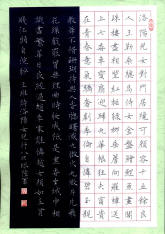 洛陽女兒對門居可顏容十五餘良
人玉勒乘驄馬侍女金盤膾鯉魚畫閣
珠樓盡相望紅桃綠柳垂簷向羅幃
送上七香車寶扇迎歸九華帳狂夫富貴
在青春意氣驕奢劇季倫自憐碧玉親
教舞不惜珊瑚持與人春窗曙滅九微火九微片片飛
花璅戲罷曾無理曲時妝成祗是薰香坐城中相
識盡繁華日夜經過趙李家誰憐越女顏如玉貧
賤江頭自浣紗 王維詩洛陽女兒行